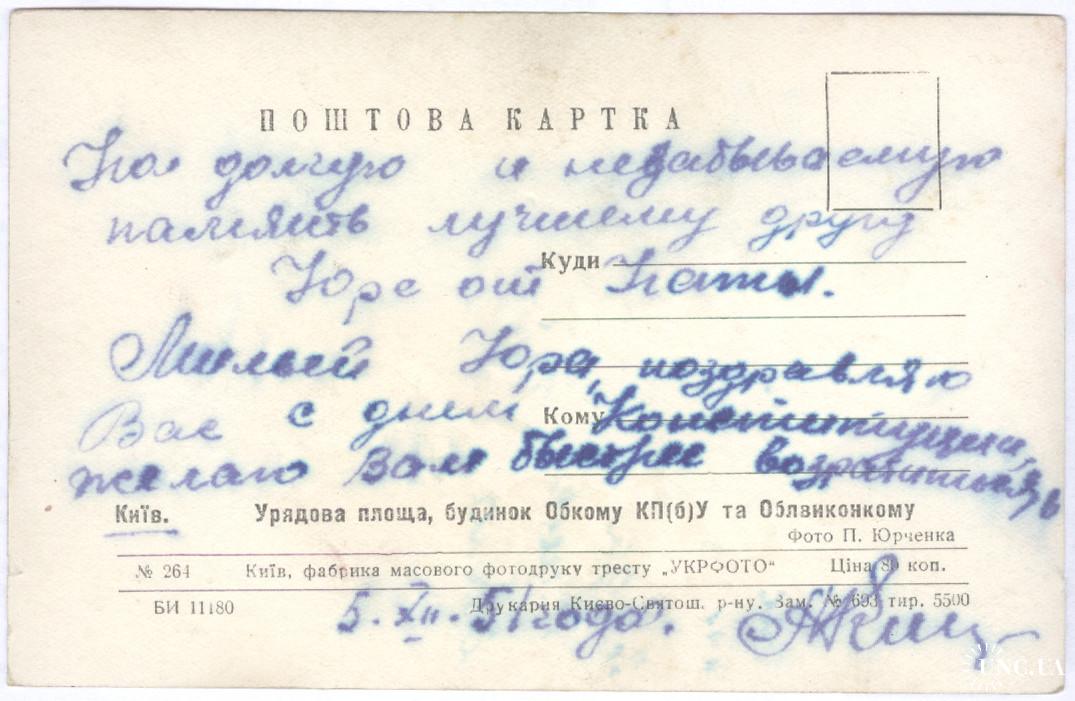 ПОШТОВА КАРТКА
На долгую и незабываемую
память лучшему другу
Куди
Юре от Наты.
Милый Юра, поздравляю
Вас с днем Кому "Конституции",
желаю Вам быстрее возратиться в
Київ. Урядова площа, будинок Обкому КП(б)У та Облвиконкому
Фото П. Юрченка
№ 264 Київ, фабрика масового фотодруку тресту „УКРФОТО" Ціна 80 коп.
БИ 11180 Друкарня Києво-Святош. р-ну. Зам. № 693 тир. 5500
5. XII. 51 года.
UNC.UA